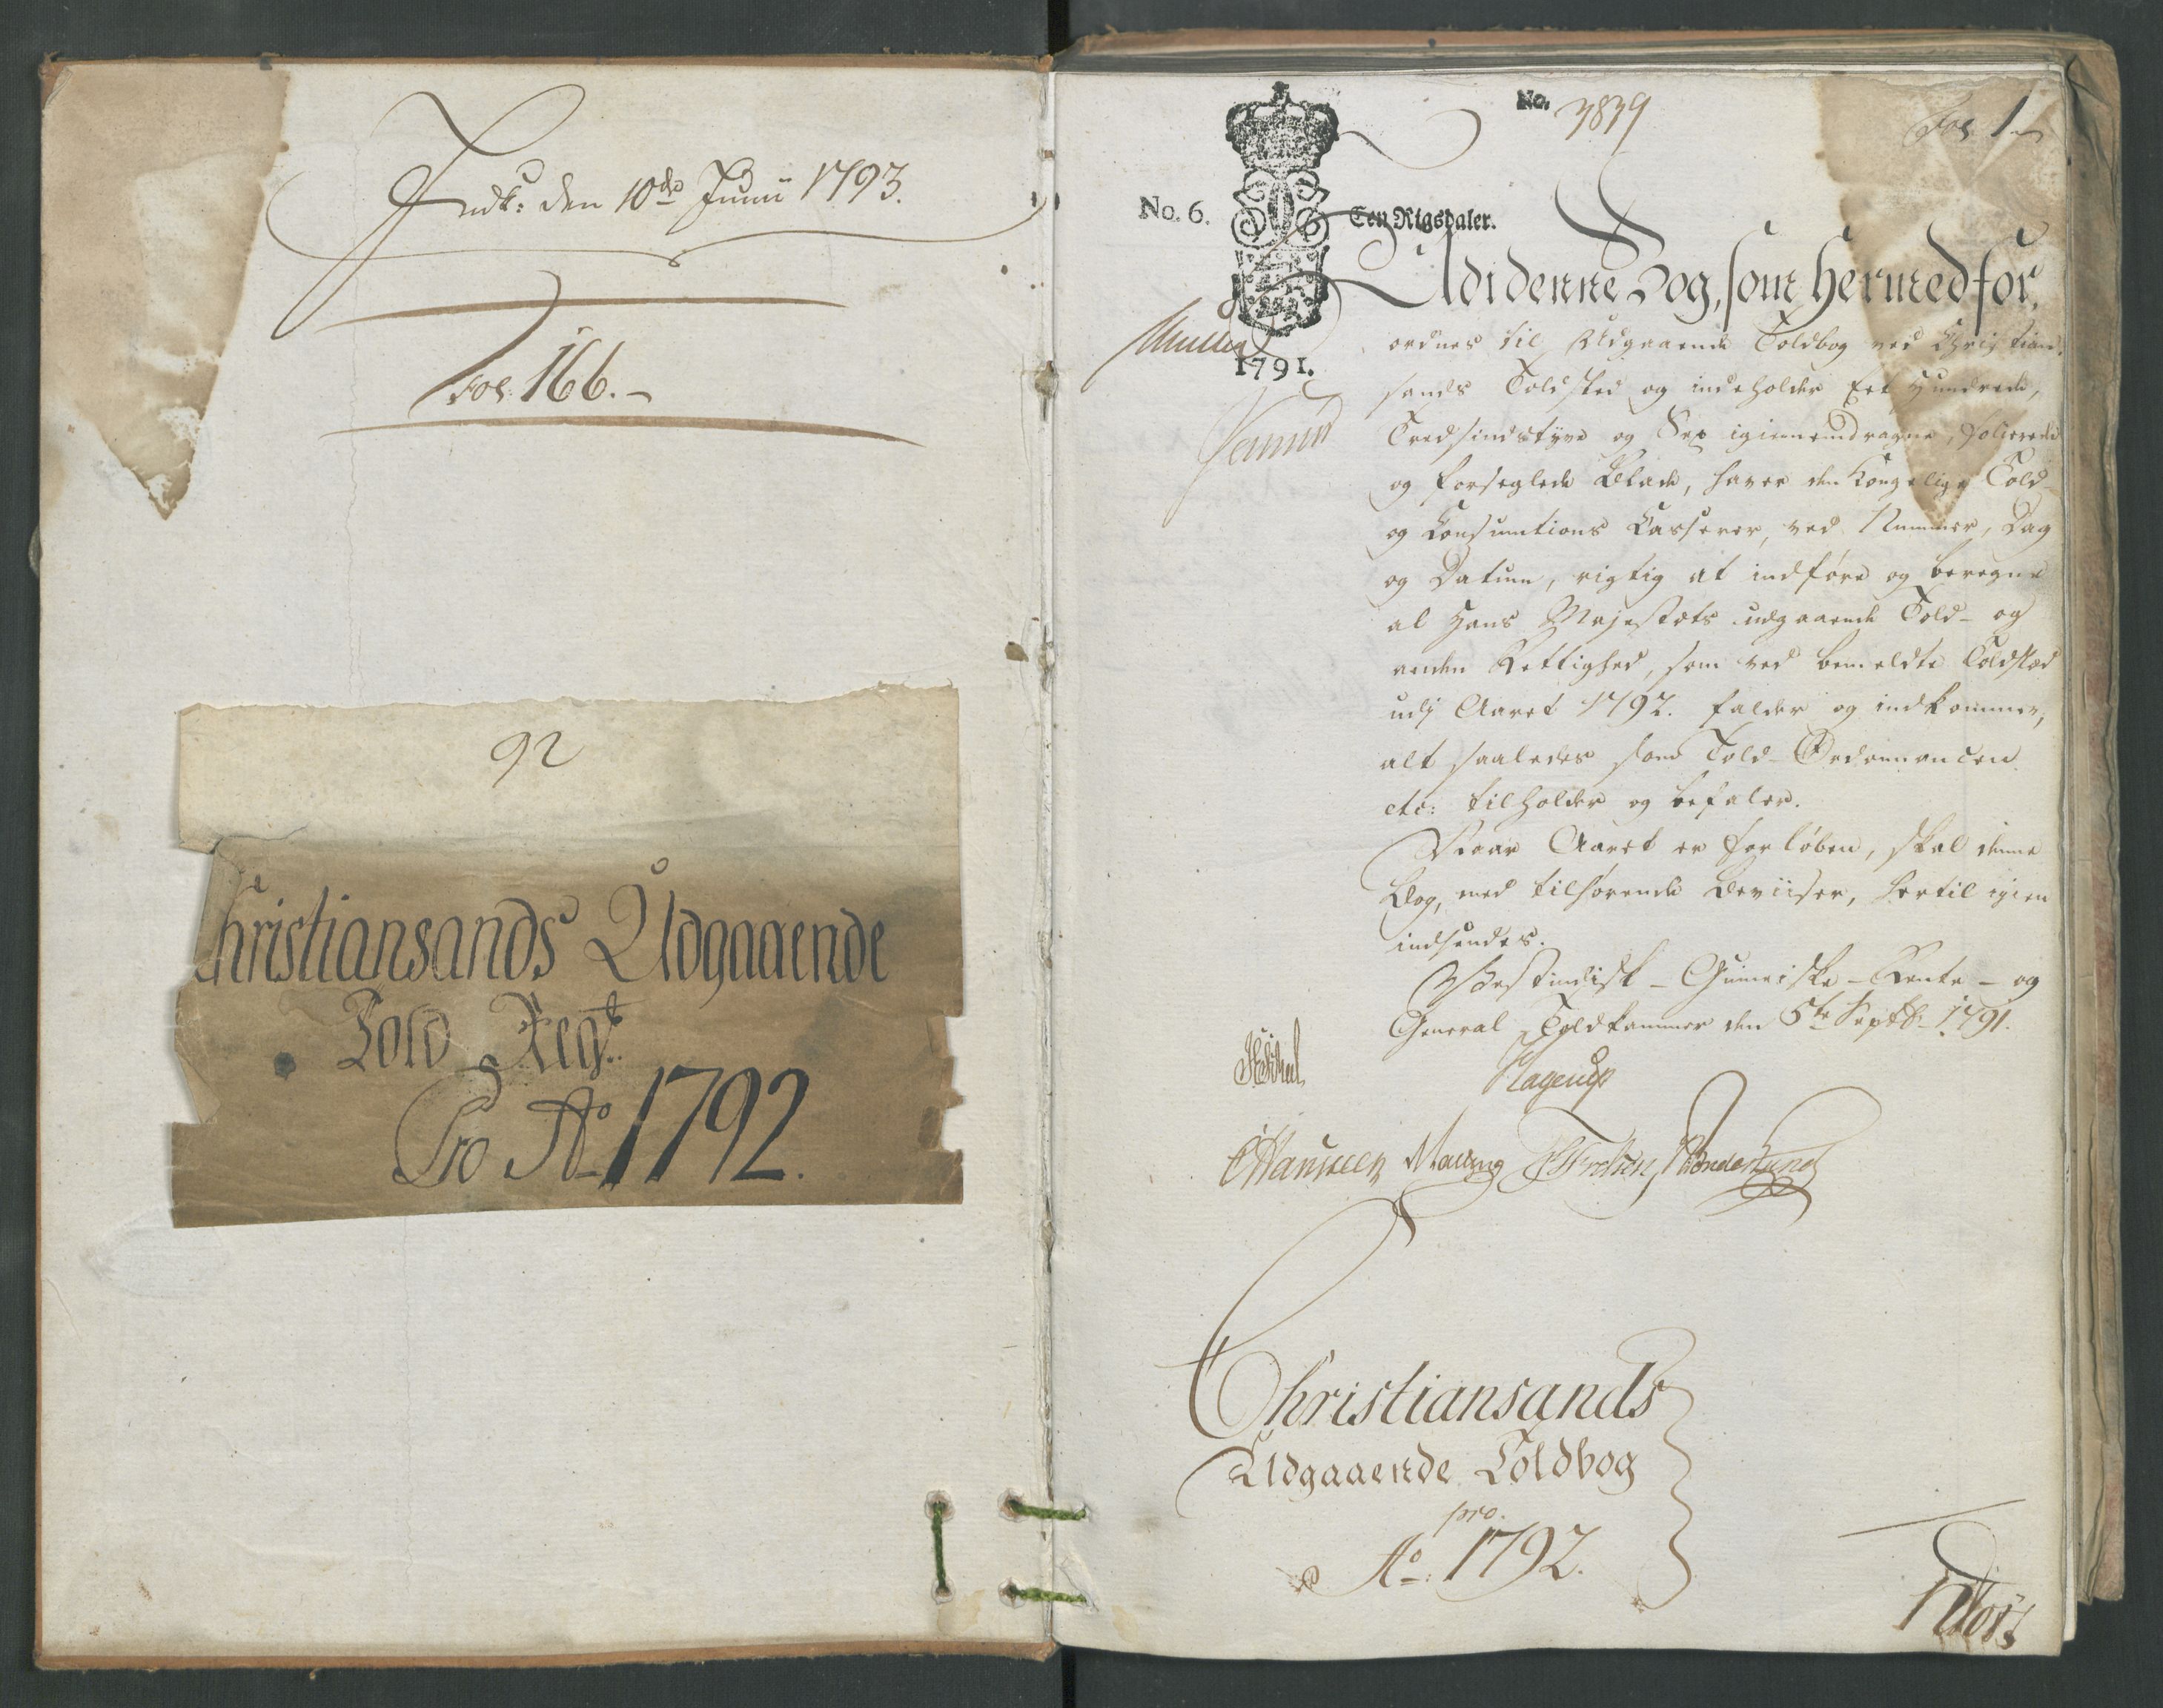 Indk: den 10de Junii 1793.
Fol. 166.-
92
Christiansands Udgaaende
Told Regt.
Pro Ao 1792.
No. 3839
Fol. 1
No. 6.
Een Rigsdaler.
1791.
Udi denne Bog, som hermed for,
ordnes til Udgaaende Toldbog ved Christian-
sands Toldsted og indeholder Eet Hundrede,
Tredsindstyve og Sex igiennemdragne, Folierede
og forseglede Blade, haver den Kongelige Told-
og Consumtions Casserer, ved Nummer, Dag
og Datum, rigtig at indføre og beregne
al Hans Majestæts udgaaende Told- og
anden Rettighed, som ved bemeldte Toldsted
udj Aaret 1792. falder og indkommer,
alt saaledes som Told-Ordonnancen
etc: tilholder og befaler.
Naar Aaret er forløben, skal denne
Bog, med tilhørende Beviiser, hertil igien
indsendes.
Vestindisk-Guineiske-Rente- og
General Toldkammer den 5te Septbr 1791.
Hagerup
Malling
Christiansands
Udgaaende Toldbog
pro.
Ao: 1792.